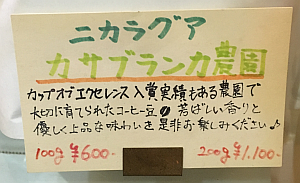 ニカラグア
カサブランカ農園
カップオブエクセレンス入賞実績もある農園で
大切に育てられたコーヒー豆の芳ばしい香りと
優しく上品な味わいを是非お楽しみください♪
100g ¥600- 200g ¥1,100-